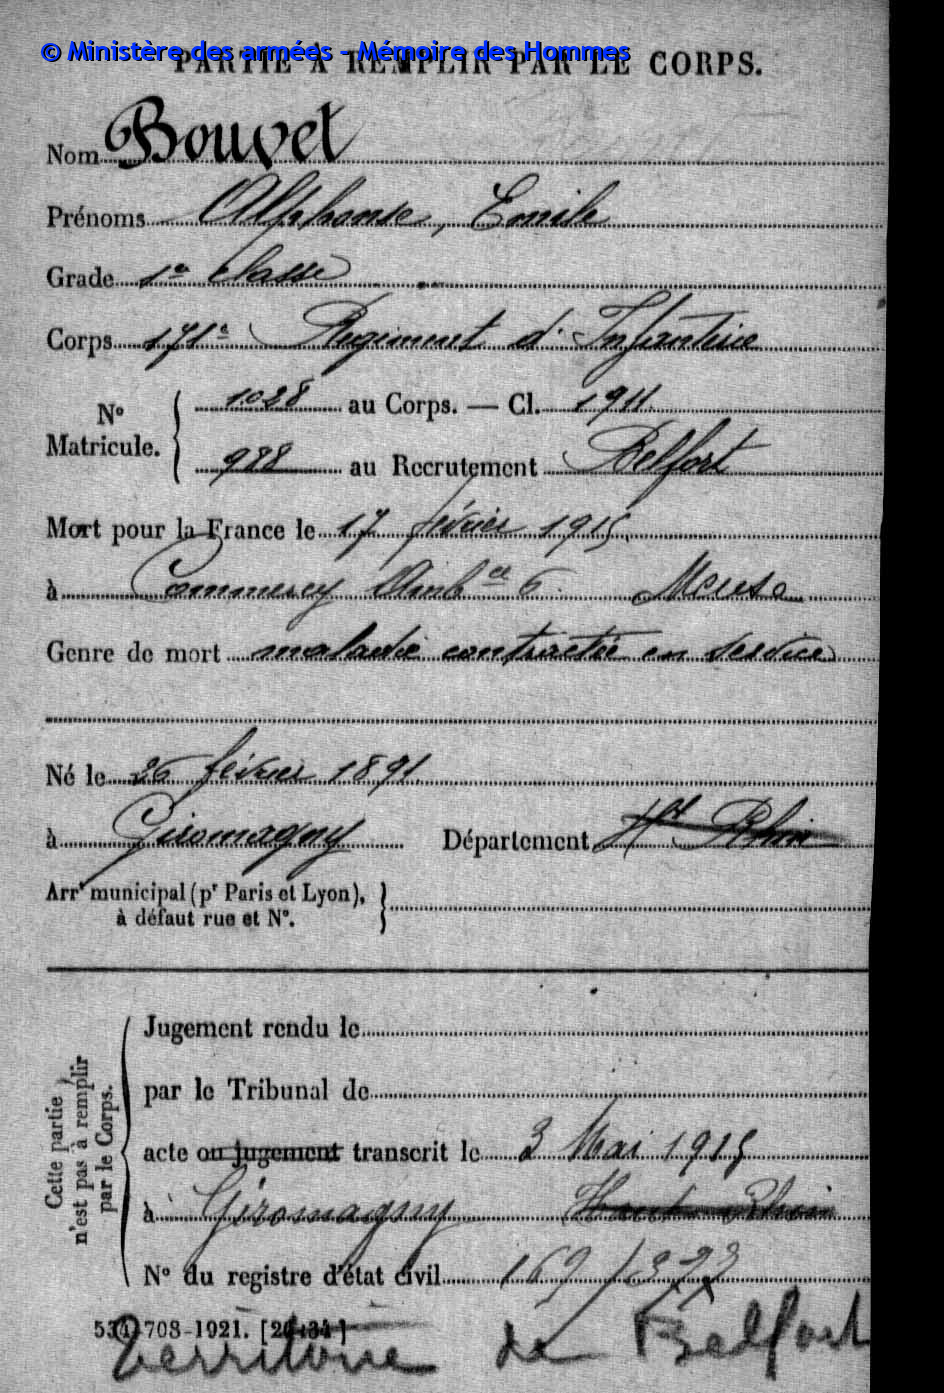 © Ministère des armées - Mémoire des Hommes
PARTIE À REMPLIR PAR LE CORPS.
Nom Bouvet
Prénoms Alphonse, Emile
Grade 1re classe
Corps 171e Régiment d'Infanterie
No Matricule. 1028 au Corps. — Cl. 1911
988 au Recrutement Belfort
Mort pour la France le 17 février 1915
à Commercy Ambce 6 Meuse
Genre de mort maladie contractée en service
Né le 26 février 1891
à Giromagny Département Ht Rhin
Arrt municipal (pr Paris et Lyon),
à défaut rue et No.
Cette partie n'est pas à remplir par le Corps.
Jugement rendu le
par le Tribunal de
acte ou jugement transcrit le 3 Mai 1915
à Giromagny Haut Rhin
No du registre d'état civil 169/
534-708-1921. [26434]
Territoire de Belfort